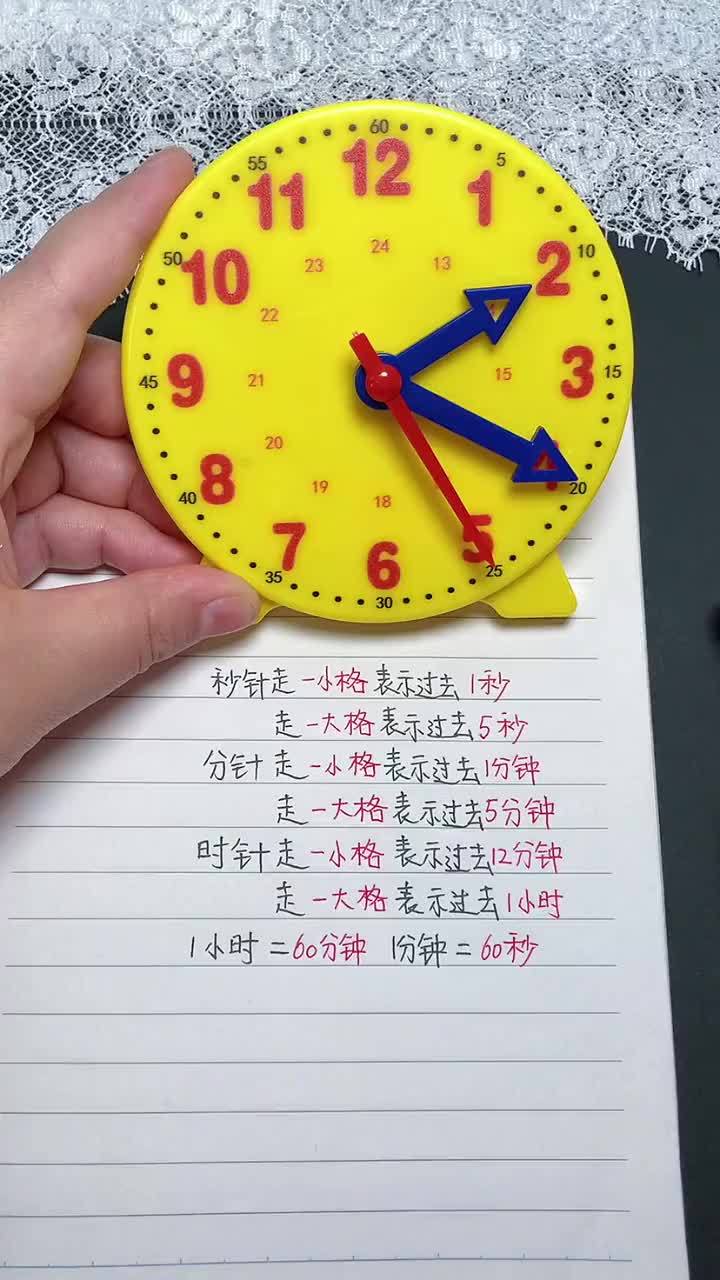 60
55
5
12
11
1
50
10
10
2
24
23
13
22
45
9
21
15
3
15
20
8
19
18
4
20
40
7
6
5
35
30
25
秒针走一小格表示过去1秒
走一大格表示过去5秒
分针走一小格表示过去1分钟
走一大格表示过去5分钟
时针走一小格表示过去12分钟
走一大格表示过去1小时
1小时=60分钟 1分钟=60秒